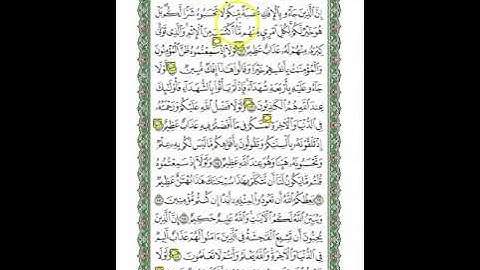 إِنَّ ٱلَّذِينَ جَآءُو بِٱلْإِفْكِ عُصْبَةٌ مِّنكُمْ لَا تَحْسَبُوهُ شَرًّا لَّكُم بَلْ
هُوَ خَيْرٌ لَّكُمْ لِكُلِّ ٱمْرِئٍ مِّنْهُم مَّا ٱكْتَسَبَ مِنَ ٱلْإِثْمِ وَٱلَّذِى تَوَلَّىٰ
كِبْرَهُۥ مِنْهُمْ لَهُۥ عَذَابٌ عَظِيمٌ لَّوْلَآ إِذْ سَمِعْتُمُوهُ ظَنَّ ٱلْمُؤْمِنُونَ
وَٱلْمُؤْمِنَٰتُ بِأَنفُسِهِمْ خَيْرًا وَقَالُوا۟ هَٰذَآ إِفْكٌ مُّبِينٌ لَّوْلَا
جَآءُو عَلَيْهِ بِأَرْبَعَةِ شُهَدَآءَ فَإِذْ لَمْ يَأْتُوا۟ بِٱلشُّهَدَآءِ فَأُو۟لَٰٓئِكَ
عِندَ ٱللَّهِ هُمُ ٱلْكَٰذِبُونَ وَلَوْلَا فَضْلُ ٱللَّهِ عَلَيْكُمْ وَرَحْمَتُهُۥ
فِى ٱلدُّنْيَا وَٱلْءَاخِرَةِ لَمَسَّكُمْ فِى مَآ أَفَضْتُمْ فِيهِ عَذَابٌ عَظِيمٌ
إِذْ تَلَقَّوْنَهُۥ بِأَلْسِنَتِكُمْ وَتَقُولُونَ بِأَفْوَاهِكُم مَّا لَيْسَ لَكُم بِهِۦ عِلْمٌ
وَتَحْسَبُونَهُۥ هَيِّنًا وَهُوَ عِندَ ٱللَّهِ عَظِيمٌ وَلَوْلَآ إِذْ سَمِعْتُمُوهُ
قُلْتُم مَّا يَكُونُ لَنَآ أَن نَّتَكَلَّمَ بِهَٰذَا سُبْحَٰنَكَ هَٰذَا بُهْتَٰنٌ عَظِيمٌ
يَعِظُكُمُ ٱللَّهُ أَن تَعُودُوا۟ لِمِثْلِهِۦٓ أَبَدًا إِن كُنتُم مُّؤْمِنِينَ
وَيُبَيِّنُ ٱللَّهُ لَكُمُ ٱلْءَايَٰتِ وَٱللَّهُ عَلِيمٌ حَكِيمٌ إِنَّ ٱلَّذِينَ
يُحِبُّونَ أَن تَشِيعَ ٱلْفَٰحِشَةُ فِى ٱلَّذِينَ ءَامَنُوا۟ لَهُمْ عَذَابٌ أَلِيمٌ
فِى ٱلدُّنْيَا وَٱلْءَاخِرَةِ وَٱللَّهُ يَعْلَمُ وَأَنتُمْ لَا تَعْلَمُونَ وَلَوْلَا